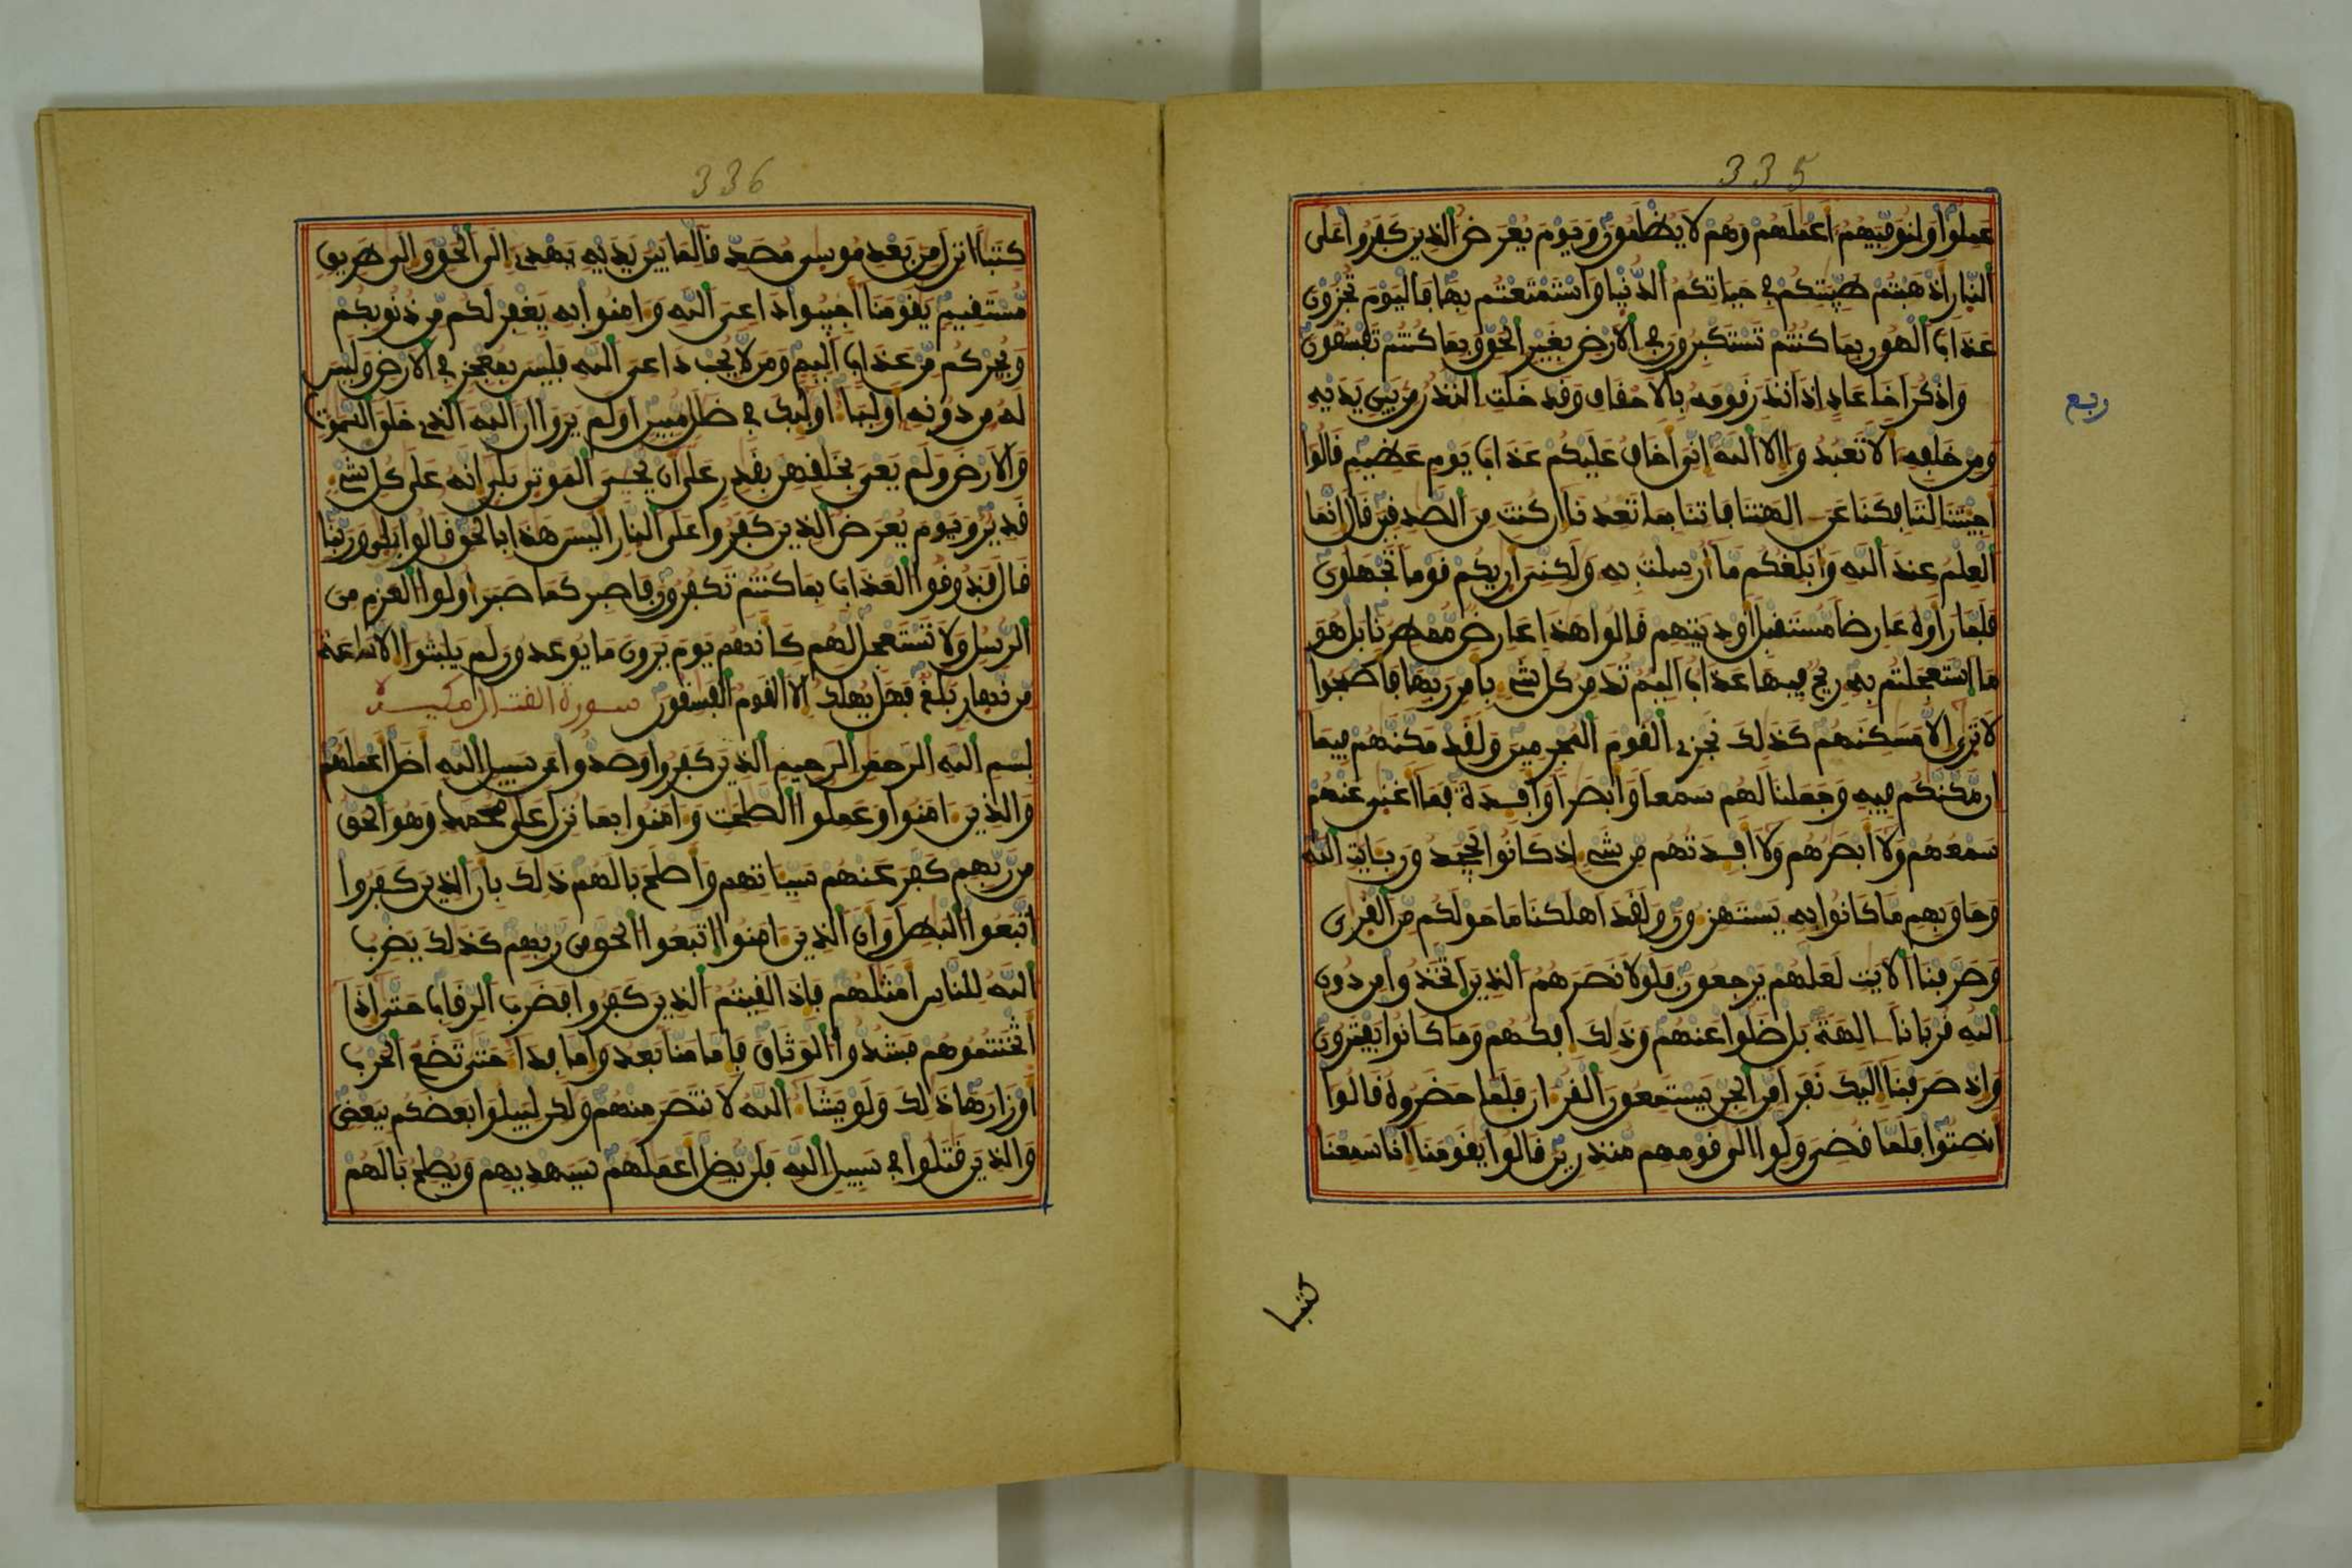 335
عملوا ولنوفيهم أعملهم وهم لا يظلمون ويوم يعرض الذين كفروا على
النار أذهبتم طيبتكم في حياتكم الدنيا واستمتعتم بها فاليوم تجزون
عذاب الهون بما كنتم تستكبرون في الأرض بغير الحق وبما كنتم تفسقون
واذكر أخا عاد إذ أنذر قومه بالأحقاف وقد خلت النذر من بين يديه
ربع
ومن خلفه ألا تعبدوا إلا الله إني أخاف عليكم عذاب يوم عظيم قالوا
أجئتنا لتافكنا عن الهتنا فاتنا بما تعدنا إن كنت من الصدقين قال إنما
العلم عند الله وأبلغكم ما أرسلت به ولكني أريكم قوما تجهلون
فلما رأوه عارضا مستقبل أوديتهم قالوا هذا عارض ممطرنا بل هو
ما استعجلتم به ريح فيها عذاب أليم تدمر كل شيء بامر ربها فأصبحوا
لا ترى إلا مسكنهم كذلك نجزي القوم المجرمين ولقد مكنهم فيما
إن مكنكم فيه وجعلنا لهم سمعا وأبصرا وأفـدة فما أغنى عنهم
سمعهم ولا أبصرهم ولا أفـدتهم من شيء إذ كانوا يجحدون بـايت الله
وحاق بهم ما كانوا به يستهزءون ولقد أهلكنا ما حولكم من القرى
وصرفنا الأيت لعلهم يرجعون فلولا نصرهم الذين اتخذوا من دون
الله قربانا الهة بل ضلوا عنهم وذلك إفكهم وما كانوا يفترون
وإذ صرفنا إليك نفرا من الجن يستمعون القرءان فلما حضروه قالوا
أنصتوا فلما قضي ولوا إلى قومهم منذرين قالوا يقومنا إنا سمعنا
كتبا
336
كتبا أنزل من بعد موسى مصدقا لما بين يديه يهدي إلى الحق وإلى طريق
مستقيم يقومنا أجيبوا داعي الله وءامنوا به يغفر لكم من ذنوبكم
ويجركم من عذاب أليم ومن لا يجب داعي الله فليس بمعجز في الأرض وليس
له من دونه أوليا أولئك في ضلل مبين أولم يروا أن الله الذي خلق السموت
والأرض ولم يعي بخلقهن بقدر على أن يحيي الموتى بلى إنه على كل شيء
قدير ويوم يعرض الذين كفروا على النار أليس هذا بالحق قالوا بلى وربنا
قال فذوقوا العذاب بما كنتم تكفرون فاصبر كما صبر أولوا العزم من
الرسل ولا تستعجل لهم كأنهم يوم يرون ما يوعدون لم يلبثوا إلا ساعة
من نهار بلغ فهل يهلك إلا القوم الفسقون سورة القتال مكية
بسم الله الرحمن الرحيم الذين كفروا وصدوا عن سبيل الله أضل أعملهم
والذين ءامنوا وعملوا الصلحت وءامنوا بما نزل على محمد وهو الحق
من ربهم كفر عنهم سيـاتهم وأصلح بالهم ذلك بأن الذين كفروا
اتبعوا البطل وأن الذين ءامنوا اتبعوا الحق من ربهم كذلك يضرب
الله للناس أمثلهم فإذا لقيتم الذين كفروا فضرب الرقاب حتى إذا
أثخنتموهم فشدوا الوثاق فإما منا بعد وإما فدا حتى تضع الحرب
أوزارها ذلك ولو يشا الله لانتصر منهم ولكن ليبلوا بعضكم ببعض
والذين قتلوا في سبيل الله فلن يضل أعملهم سيهديهم ويصلح بالهم